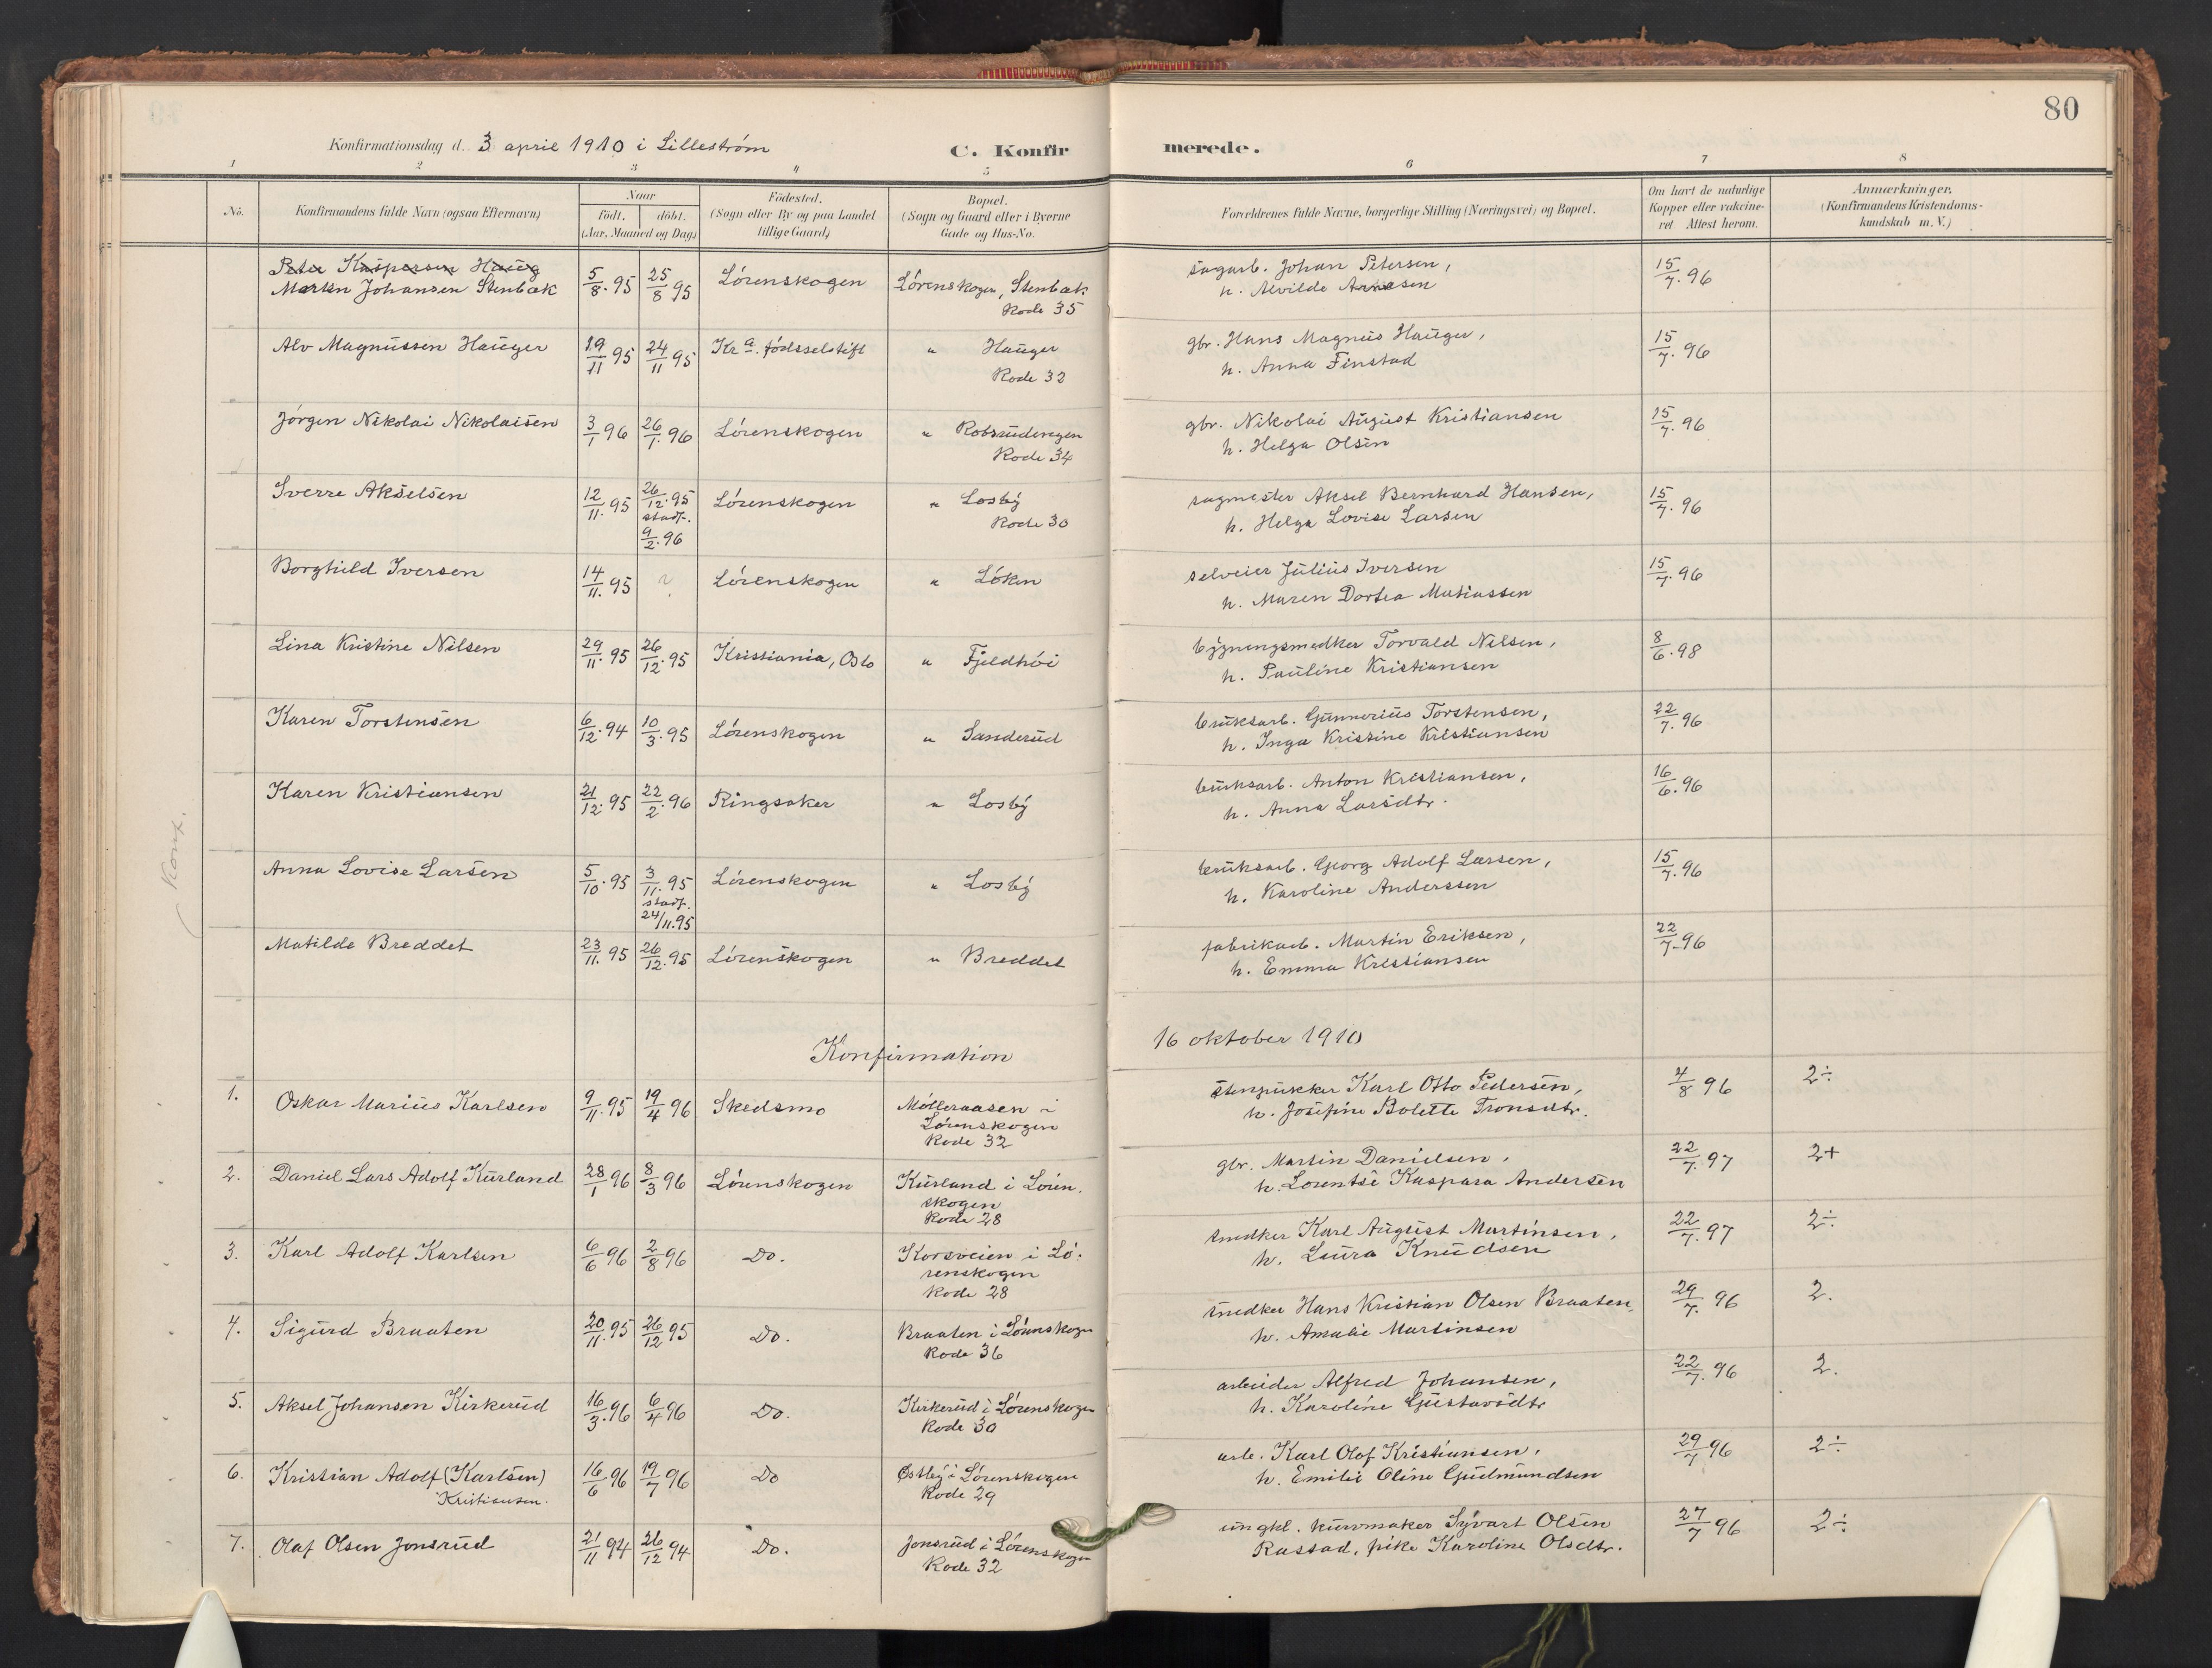 80
Konfirmationsdag d. 3 april 1910 i Lilleström
C. Konfirmerede.
1 2 3 4 5 6 7 8
No.
Konfirmandens fulde Navn (ogsaa Efternavn)
Naar
födt. döbt.
(Aar, Maaned og Dag)
Födested.
(Sogn eller By og paa Landet
tillige Gaard)
Bopæl.
(Sogn og Gaard eller i Byerne
Gade og Hus-No.
Forældrenes fulde Navne, borgerlige Stilling (Næringsvei) og Bopæl.
Om havt de naturlige
Kopper eller vakcine-
ret. Attest herom.
Anmærkninger.
(Konfirmandens Kristendoms-
kundskab m. V.)
Peter Kaspersen Haug
Martin Johansen Stenbæk 5/8. 95 25/8 95 Lørenskogen Lørenskogen, Stenbæk
Rode 35
sagarb. Johan Petersen,
h. Alvilde Arnesen
15/7. 96
Alv Magnussen Hauger 19/11 95 24/11 95 Kra. fødselstift " Hauger
Rode 32
gbr. Hans Magnus Hauger,
h. Anna Finstad
15/7. 96
Jørgen Nikolai Nikolaisen 3/1 96 26/1. 96 Lørenskogen " Robsrudengen
Rode 34
gbr. Nikolai August Kristiansen
h. Helga Olsen
15/7. 96
Sverre Akselsen 12/11. 95 26/12. 95 Lørenskogen " Losby
stadf. Rode 30
9/2. 96
sagmester Aksel Bernhard Hansen,
h. Helga Lovise Larsen
15/7. 96
Borghild Iversen 14/11. 95 ? Lørenskogen " Løken
selveier Julius Iversen
h. Maren Dortea Matiassen
15/7. 96
Lina Kristine Nilsen 29/11. 95 26/12. 95 Kristiania, Oslo " Fjeldhøi
bygningssnedker Torvald Nilsen,
h. Pauline Kristiansen
8/6. 98
Karen Torstensen 6/12. 94 10/3. 95 Lørenskogen " Sanderud
bruksarb. Gunnerius Torstensen,
h. Inga Kristine Kristiansen
22/7. 96
Karen Kristiansen 21/12. 95 22/2. 96 Ringsaker " Losby
bruksarb. Anton Kristiansen,
h. Anna Larsdtr.
16/6. 96
Anna Lovise Larsen 5/10. 95 3/11. 95 Lørenskogen " Losby
stadf.
24/11.95
bruksarb. Georg Adolf Larsen,
h. Karoline Anderssen
15/7. 96
Matilde Breddet 23/11. 95 26/12. 95 Lørenskogen " Breddet
fabrikarb. Martin Eriksen,
h. Emma Kristiansen
22/7. 96
Konf.
Konfirmation 16 oktober 1910
1. Oskar Marius Karlsen 9/11. 95 19/4 96 Skedsmo Mølleraasen i
Lørenskogen
Rode 32
stenpukker Karl Otto Pedersen,
h. Josefine Bolette Tronsdtr.
4/8 96 2÷
2. Daniel Lars Adolf Kurland 28/1 96 8/3 96 Lørenskogen Kurland i Løren.
skogen
Rode 28
gbr. Martin Danielsen,
h. Lorentse Kaspara Andersen
22/7. 97 2+
3. Karl Adolf Karlsen 6/6 96 2/8 96 Do. Korsveien i Lø.
renskogen
Rode 28
snedker Karl August Martinsen,
h. Laura Knudsen
22/7. 97 2÷
4. Sigurd Braaten 20/11. 95 26/12 95 Do. Braaten i Lørenskogen
Rode 36
snedker Hans Kristian Olsen Braaten,
h. Amalie Martinsen
29/7. 96 2.
5. Aksel Johansen Kirkerud 16/3. 96 6/4 96 Do. Kirkerud i Lørenskogen
Rode 30
arbeider Alfred Johansen,
h. Karoline Gustavsdtr
22/7. 96 2.
6. Kristian Adolf (Karlsen) 16/6 96 19/7 96 Do Østby i Lørenskogen
Kristiansen. Rode 29
arb. Karl Olof Kristiansen,
h. Emilie Oline Gudmundsen
29/7 96 2÷
7. Olaf Olsen Jonsrud 21/11 94 26/12 94 Do. Jonsrud i Lørenskogen
Rode 32
ungkl. kurvmaker Syvart Olsen
Rustad, pike Karoline Olsdtr.
27/7 96 2÷